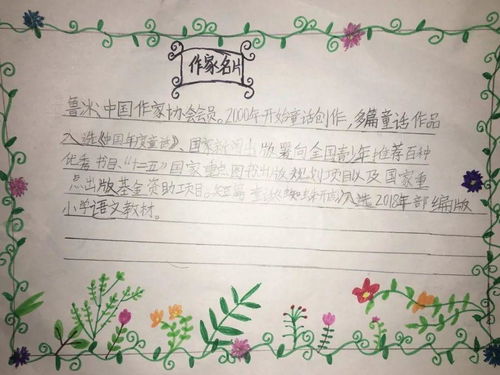 作家名片
鲁冰,中国作家协会会员。2000年开始童话创作,多篇童话作品
入选《中国年度童话》、国家新闻出版署向全国青少年推荐百种
优秀书目、“十二五”国家重点图书出版规划项目以及国家重
点出版基金资助项目。短篇童话《蜘蛛开店》入选2018年部编版
小学语文教材。